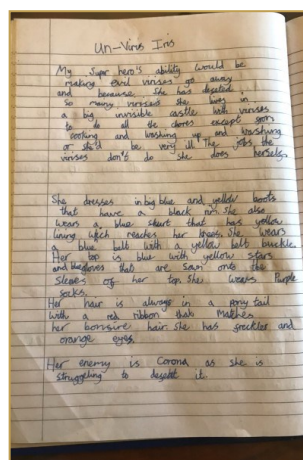 Un-Virus Iris
My Super hero's ability would be
making evil viruses go away
and because she has defeted
so many viruses she lives in
a big invisible castle with viruses
to do all the chores except from
cooking and washing up and washing
or she'd be very ill. The jobs the
viruses don't do she does herself.
She dresses in big blue and yellow boots
that have a black rim. She also
wears a blue skirt that has yellow
lining which reaches her knees. She wears
a blue belt with a yellow belt buckle.
Her top is blue with yellow stars
and blue gloves that are sewn onto the
sleves of her top. She wears Purple
socks.
Her hair is always in a pony tail
with a red ribbon that matches
her bonfire hair. She has freckles and
orange eyes.
Her enemy is Corona as she is
struggling to defeat it.